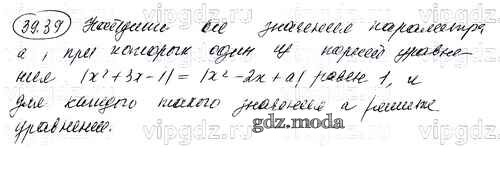 39.39 Найдите все значение параметра
а, при которых один из корней уравне-
ние |x²+3x-1| = |x²-2x+a| равен 1, и
для каждого такого значение а решите
уравнение.
gdz.moda
vipgdz.ru vipgdz.ru vipgdz.ru
vipgdz.ru vipgdz.ru vipgdz.ru